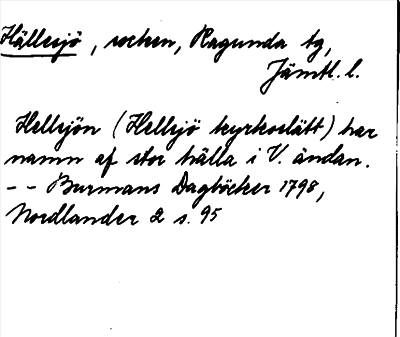 Hällesjö, socken, Ragunda tg,
Jämtl. l.
Hellsjön (Hellsjö kyrkoslätt) har
namn af stor hälla i V. ändan.
-- Burmans Dagböcker 1798,
Nordlander 2 s. 95